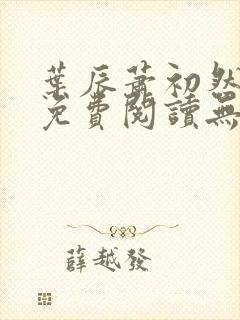 葉辰蕭初然
免費閱讀無
薛越發